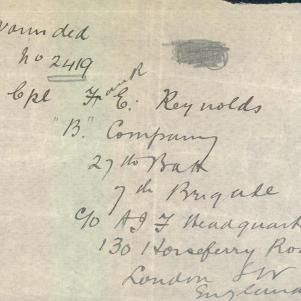 wounded
No 2419
Frank
Cpl F. E. Reynolds
"B." Company
27th Batt
7th Brigade
C/o A I F Headquart
130 Horseferry Roa
London S W
England